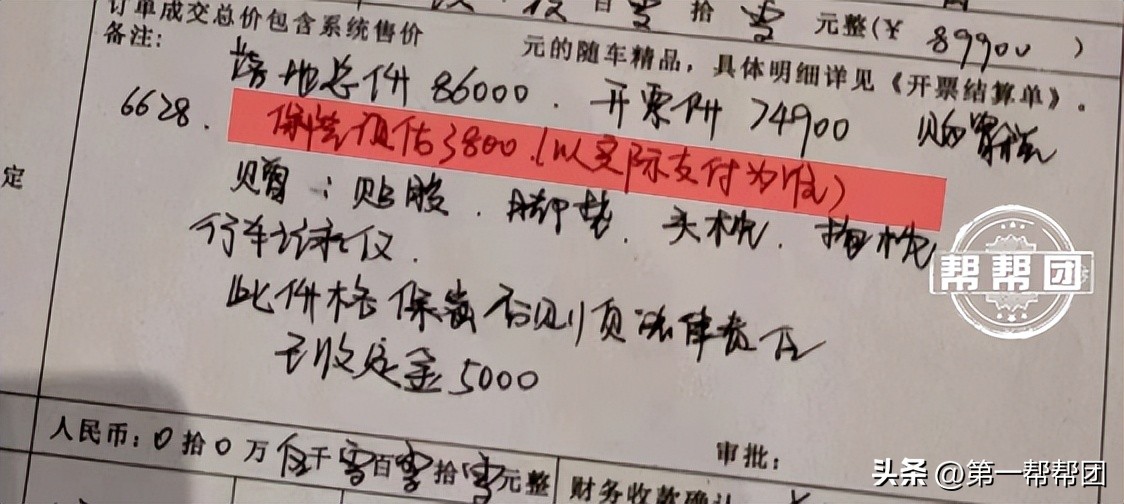 百零拾零元整(¥ 89900 )
订单成交总价包含系统售价 元的随车精品，具体明细详见《开票结算单》。
备注：
落地总价 86000．开票价 74900 购置税
6628．保险预估3800．(以实际支付为准)
定
赠：贴膜．脚垫．头枕．抱枕
行车记录仪．
此价格保真 否则负法律责任
已收定金5000
人民币：0拾0万伍千零百零拾零元整
审批：
财务收款确认
帮帮团
头条 @第一帮帮团